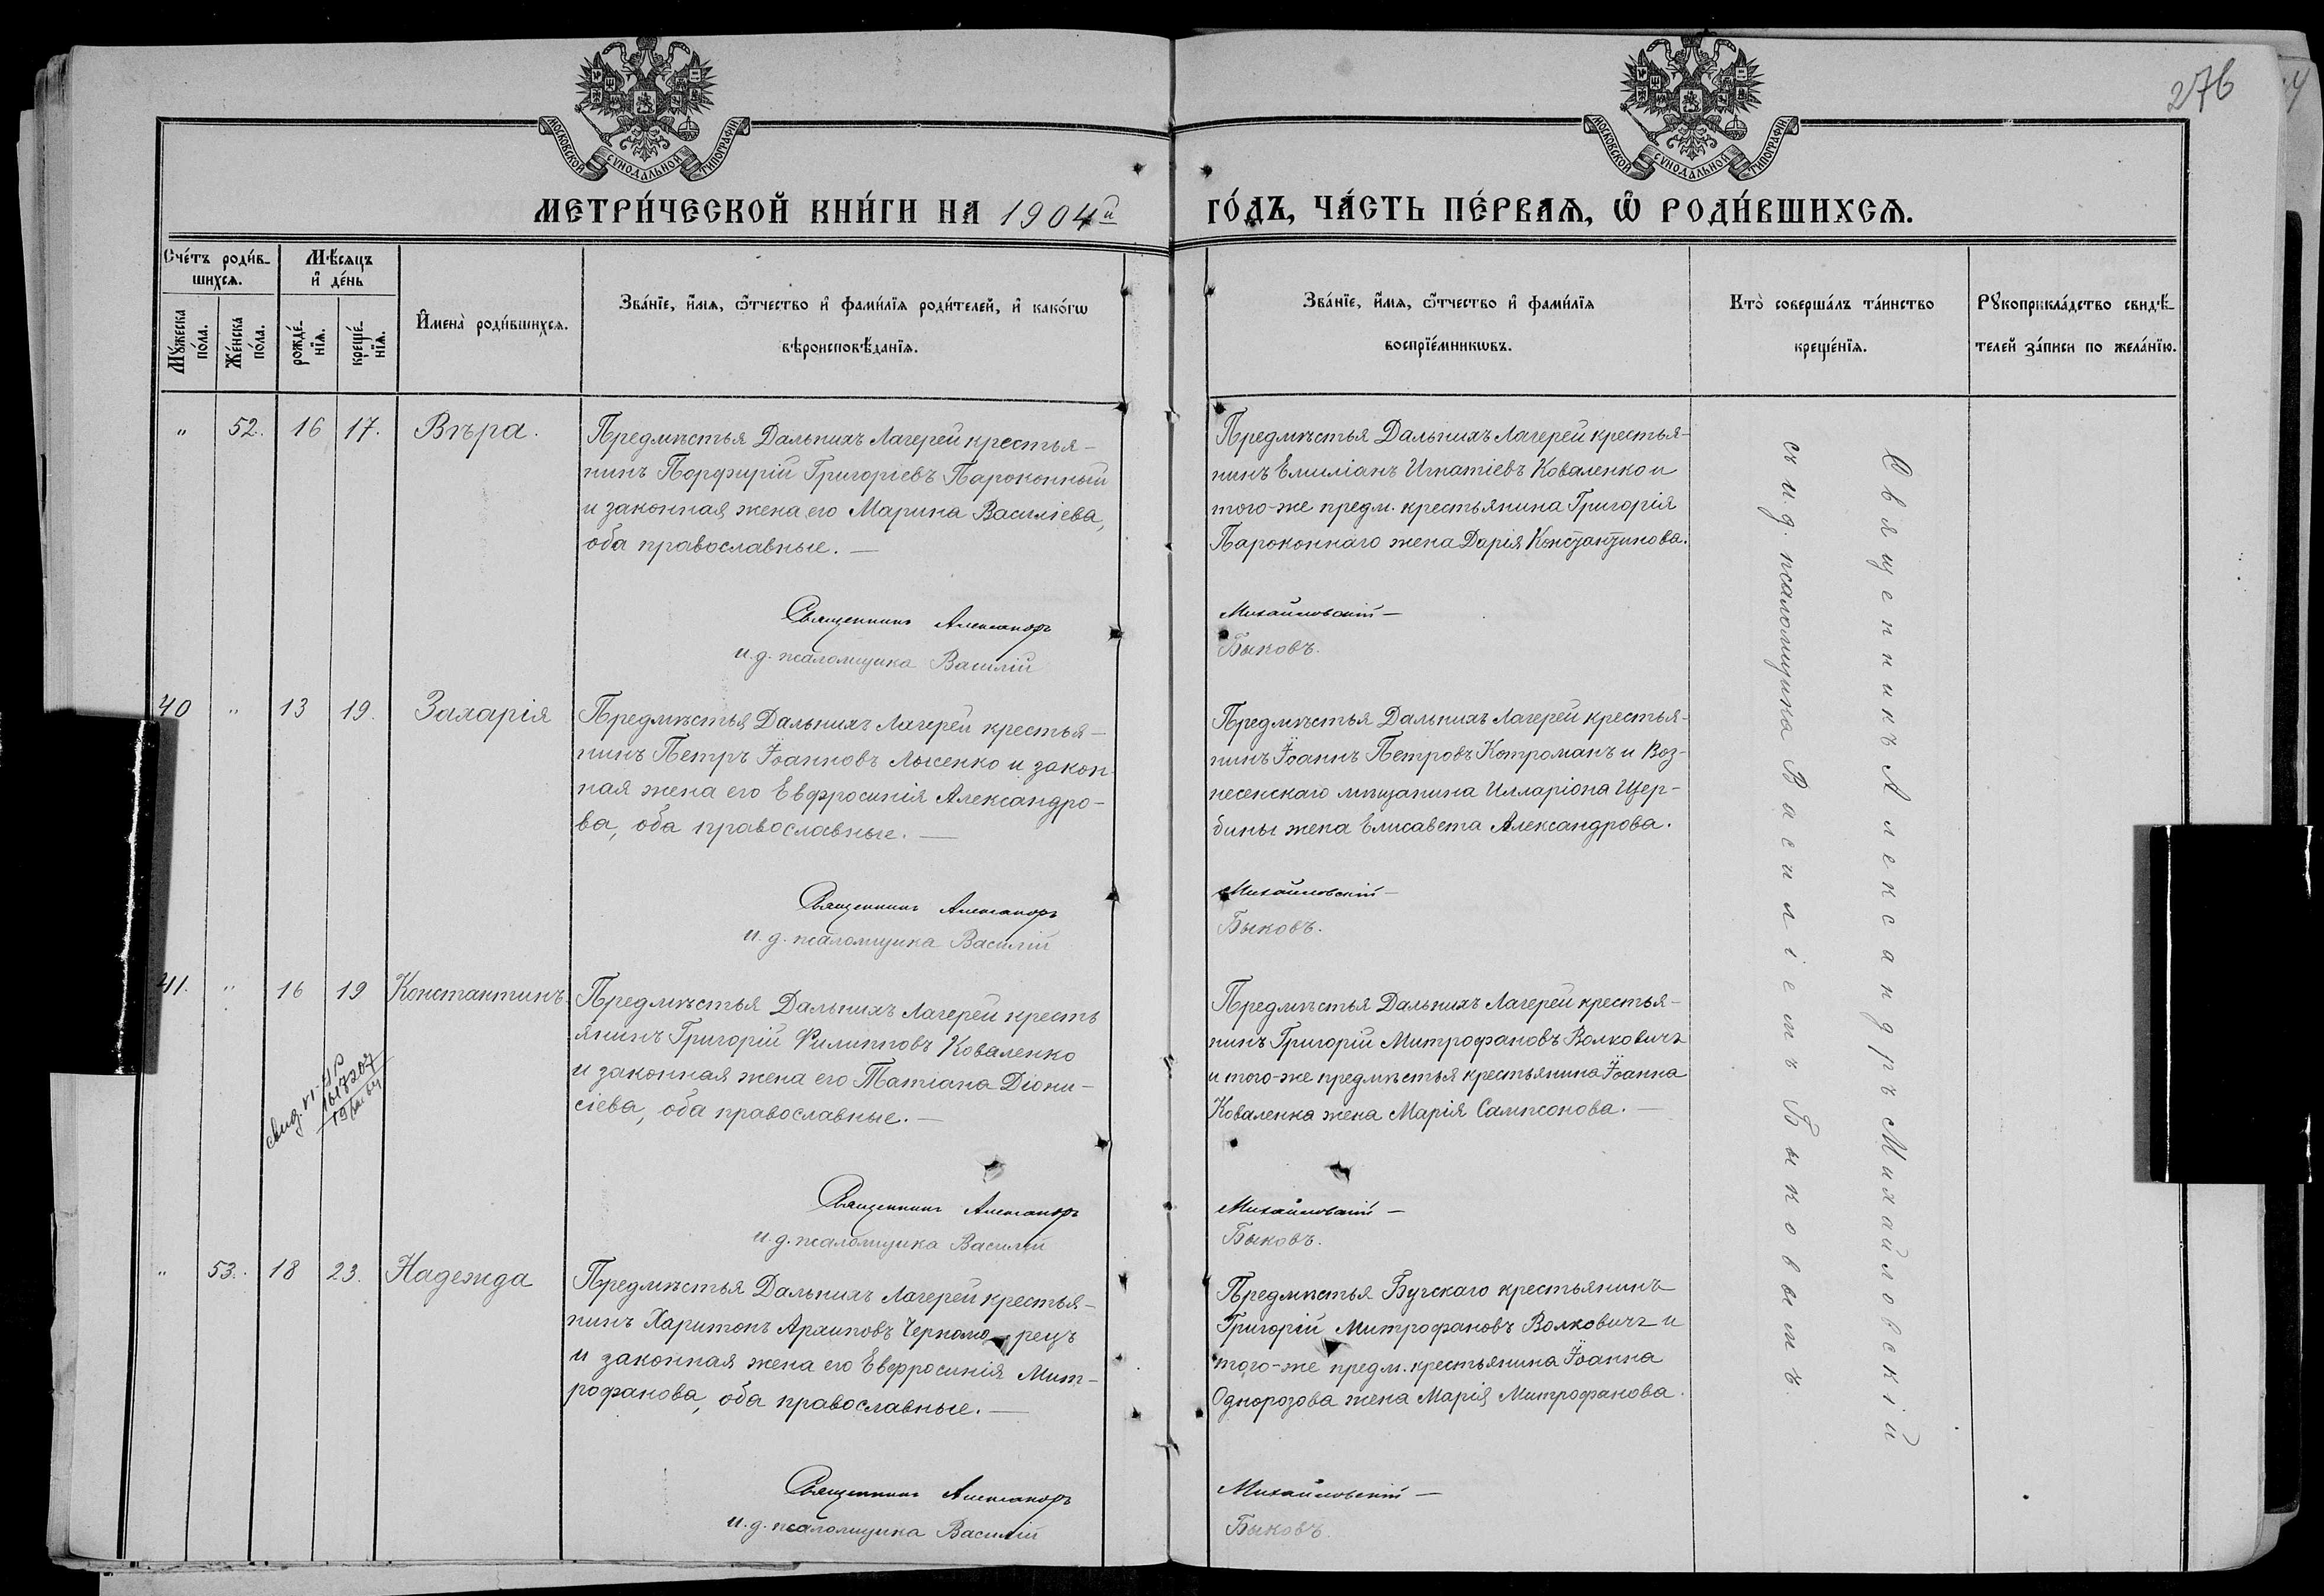 276
МОСКОВСКОЙ СѴНОДАЛЬНОЙ ТИПОГРАФІИ
МОСКОВСКОЙ СѴНОДАЛЬНОЙ ТИПОГРАФІИ
МЕТРИ́ЧЕСКОЙ КНИ́ГИ НА 1904й ГО́ДЪ, ЧА́СТЬ ПЕ́РВАЯ, Ѡ҆ РОДИ́ВШИХСЯ.
Сче́тъ роди́в-
шихся.
Мꙋ́жеска
по́ла.
Же́нска
по́ла.
Мѣ́сяцъ
и҆ де́нь
рожде́-
нїя.
креще́-
нїя.
И҆мена̀ роди́вшихся.
Зва́нїе, и҆́мя, ѻ҆́тчество и҆ фами́лїя роди́телей, и҆ како́гѡ
вѣроисповѣ́данїя.
Зва́нїе, и҆́мя, ѻ҆́тчество и҆ фами́лїя
воспрїе́мникѡвъ.
Кто̀ соверша́лъ та́инство
креще́нїя.
Рꙋкоприкла́дство свидѣ́-
телей за́писи по жела́нїю.
" 52. 16 17. Вѣра.
Предмѣстья Дальнихъ Лагерей крестья-
нинъ Порфирій Григоріевъ Пароконный
и законная жена его Марина Василіева,
оба православные. —
Предмѣстья Дальнихъ Лагерей крестья-
нинъ Емиліанъ Игнатіевъ Коваленко и
того-же предм. крестьянина Григорія
Пароконнаго жена Дарія Константинова.
Священникъ Александръ Михайловскій —
и. д. псаломщика Василій Быковъ.
40 " 13 19. Захарія
Предмѣстья Дальнихъ Лагерей крестья-
нинъ Петръ Іоанновъ Лысенко и закон-
ная жена его Евфросинія Александро-
ва, оба православные. —
Предмѣстья Дальнихъ Лагерей крестья-
нинъ Іоаннъ Петровъ Котроманъ и Воз-
несенскаго мѣщанина Илларіона Щер-
бины жена Елисавета Александрова.
Священникъ Александръ Михайловскій —
и. д. псаломщика Василій Быковъ.
41. " 16 19 Константинъ.
Предмѣстья Дальнихъ Лагерей кресть
янинъ Григорій Филипповъ Коваленко
и законная жена его Татіана Діони-
сіева, оба православные. —
Предмѣстья Дальнихъ Лагерей крестья-
нинъ Григорій Митрофановъ Волковичъ
и того-же предмѣстья крестьянина Іоанна
Коваленка жена Марія Сампсонова. —
Священникъ Александръ Михайловскій —
и. д. псаломщика Василій Быковъ.
" 53. 18 23. Надежда
Предмѣстья Дальнихъ Лагерей крестья-
нинъ Харитонъ Архиповъ Черноморецъ
и законная жена его Евфросинія Мит-
рофанова, оба православные. —
Предмѣстья Бугскаго крестьянинъ
Григорій Митрофановъ Волковичъ и
того-же предм. крестьянина Іоанна
Однорозова жена Марія Митрофанова.
Священникъ Александръ Михайловскій —
и. д. псаломщика Василій Быковъ.
Священникъ Александръ Михайловскій
съ и. д. псаломщика Василіемъ Быковымъ.